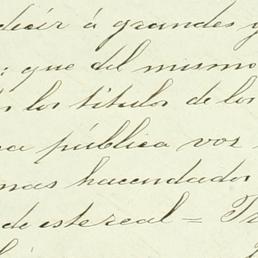 decir á grandes y
: que del mismo
los titulos de los
pública voz
mas hacendador
de este real = Tr